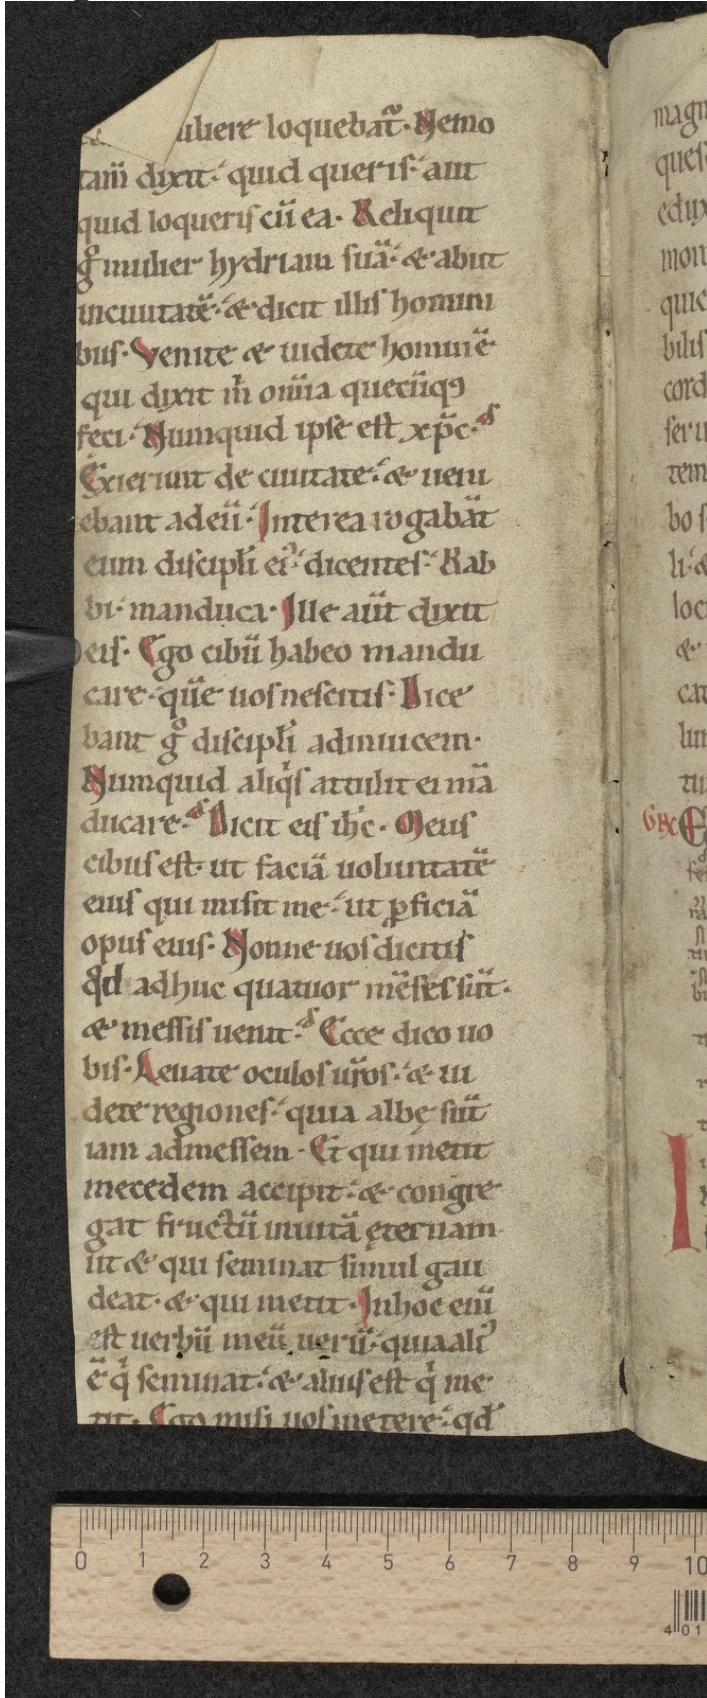 uliere loquebat̃. Nemo
tam̄ dixit. quid queris. aut
quid loqueris cū ea. Reliquit
gͦ mulier hydriam suā. & abiit
in ciuitatē. & dicit illis homini
bus. Venite & uidete hominē
qui dixit m̄ om̄ia quecūqꝫ
feci. Numquid ipse est xp̄c.
Exierunt de ciuitate. & ueni
ebant ad eū. Interea rogabāt
eum discipli ei᾽ dicentes. Rab
bi. manduca. Ille aūt dixit
eis. Ego cibū habeo mandu
care. quē uos nescitis. Dice
bant gͦ discipli adinuicem.
Numquid aliqͥs attulit ei mā
ducare. Dicit eis ih̄c. Meus
cibus est. ut faciā uoluntatē
eius qui misit me. ut ꝑficiā
opus eius. Nonne uos dicitis
qd̄ adhuc quatuor mēses sūt.
& messis uenit. Ecce dico uo
bis. Leuate oculos ur̄os. & ui
dete regiones. quia albę sūt
iam admessem. Et qui metit
mecedem accipit. & congre
gat fructū inuitā ęternam
ut & qui seminat simul gau
deat. & qui metit. Inhoc eni̅
est uerbū meū uerū. quia ali᾽
ē qͥ seminat. & alius est qͥ me
tit. Ego misi uos metere. qd̄
magn
ques
edux
mon
quie
bilis
cord
seru
tem
bo s
li. &
loc
&
cat
lun
tu
0 1 2 3 4 5 6 7 8 9 10
4 01